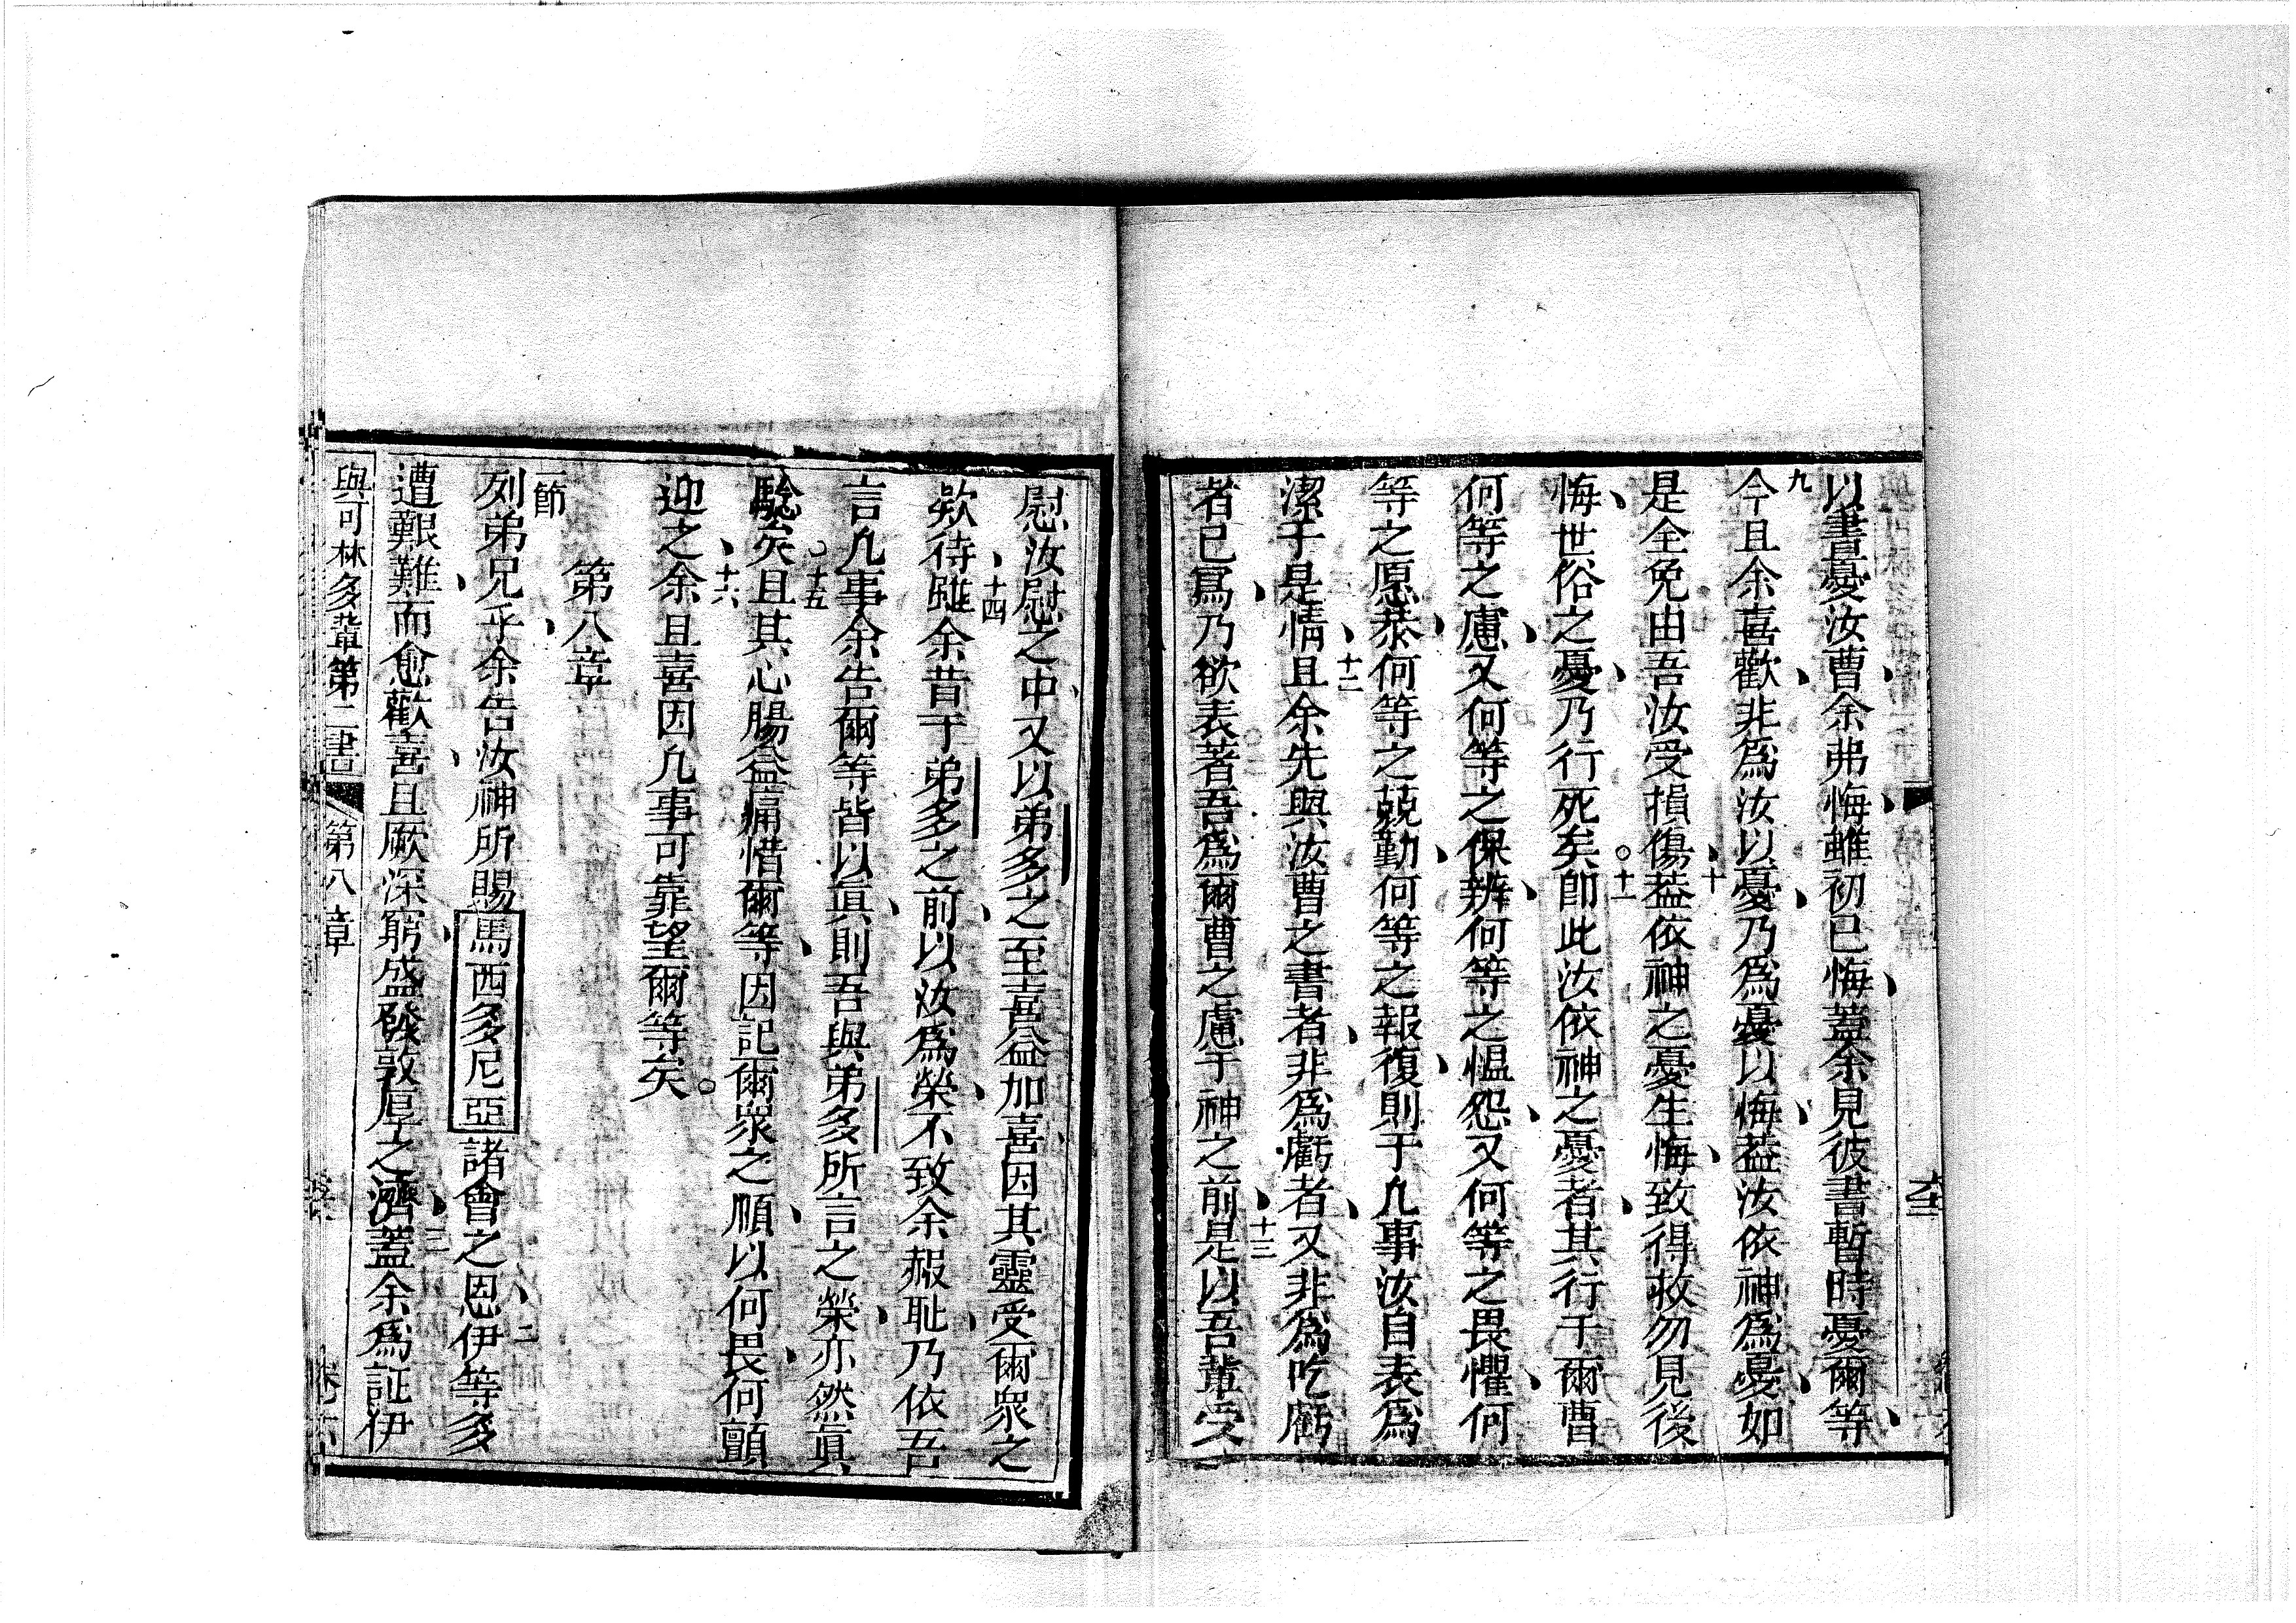 以書憂汝曹余弗悔雖初已悔蓋余見彼書暫時憂爾等
九今且余喜歡非爲汝以憂乃爲憂以悔葢汝依神爲憂如
是全免由吾汝受損傷十葢依神之憂生悔致得救勿見後
悔世俗之憂乃行死矣。十一卽此汝依神之憂者其行于爾曹
何等之慮又何等之保辨何等之愠怨又何等之畏懼何
等之愿恭何等之兢勤何等之報復則于凢事汝自表爲
潔于是情十二且余先與汝曹之書者非爲虧者又非爲吃虧
者已爲乃欲表著吾爲爾曹之慮于神之前十三是以吾輩受
慰汝慰之中又以弟多之至喜益加喜因其靈受爾衆之
欵待十四雖余昔于弟多之前以汝爲榮不致余赧耻乃依吾
言凢事余告爾等皆以眞則吾與弟多所言之榮亦然眞
騐矣十五且其心腸益痛惜爾等因記爾衆之順以何畏何顫
迎之十六余且喜因凢事可靠望爾等矣。
第八章
一節列弟兄乎余告汝神所賜馬西多尼亞諸會之恩二伊等多
遭艱難而愈歡喜且厥深窮盛發敦厚之濟三蓋余爲証伊
與可林多輩第二書 第八章